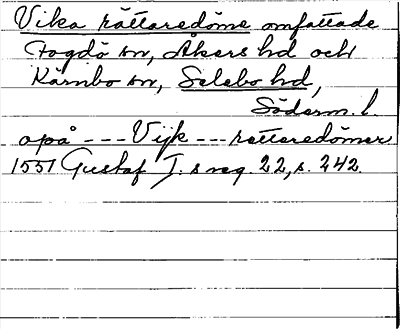 Vika rättaredöme omfattade
Fogdö sn, Åkers hd och
Kärnbo sn, Selebo hd,
Söderm. l.
opå --- Vijk --- rettaredömer
1551 Gustaf I.s reg. 22, s. 242.